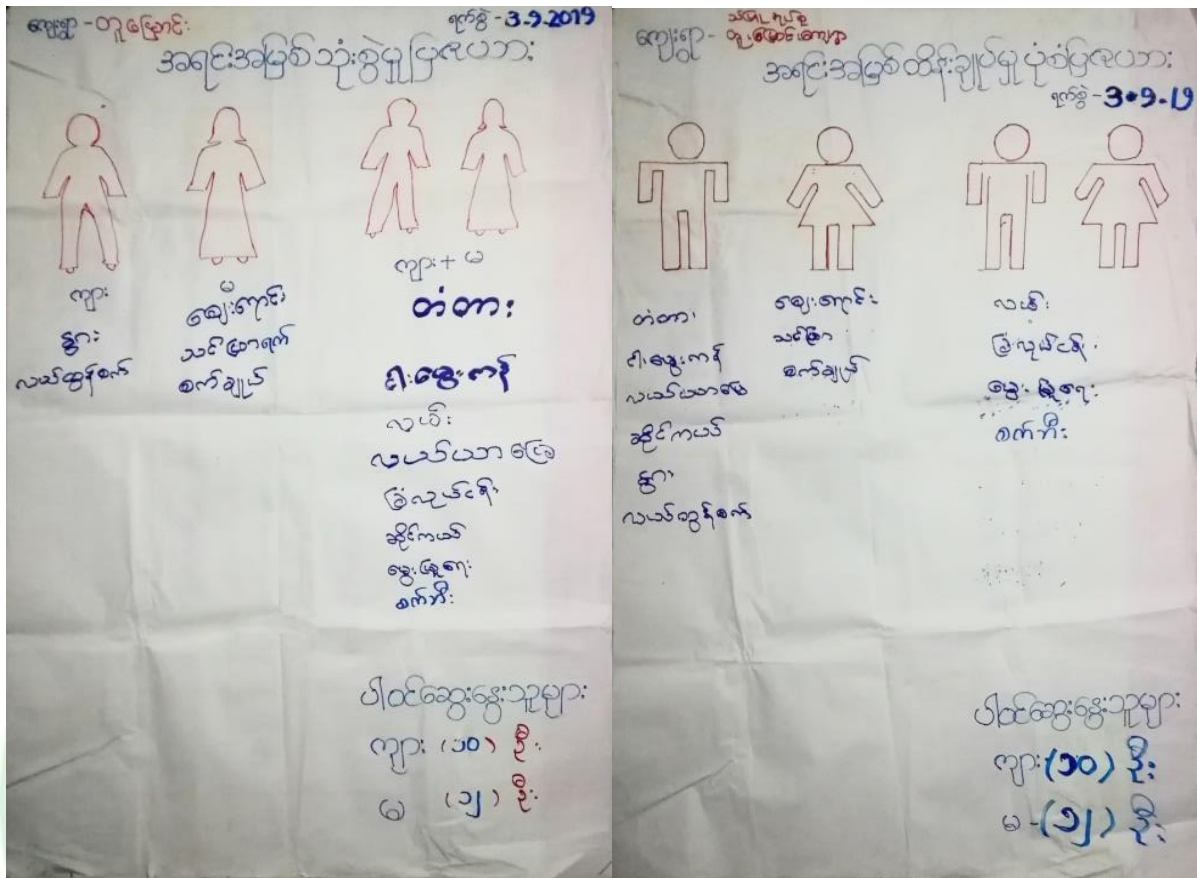 ကျေးရွာ - တူမြောင်း
ရက်စွဲ - 3.9.2019
အရင်းအမြစ် သုံးစွဲမှု ပြဇယား
ကျား
နွား
လယ်ထွန်စက်
မ
ဈေးရောင်း
သင်ဖြာရက်
စက်ချုပ်
ကျား + မ
တံတား
ငါးမွေးကန်
လယ်
လယ်ယာမြေ
ခြံလုပ်ငန်း
ဆိုင်ကယ်
မွေးမြူရေး
စက်ဘီး
ပါဝင်ဆွေးနွေးသူများ
ကျား (၁၀) ဦး
မ (၁၂) ဦး
ကျေးရွာ -
အရင်းအမြစ်ထိန်းချုပ်မှု ပုံစံပြဇယား
ရက်စွဲ - 3.9.19
တံတား
ငါးမွေးကန်
လယ်ယာမြေ
ဆိုင်ကယ်
နွား
လယ်ထွန်စက်
ဈေးရောင်း
သင်ဖြာ
စက်ချုပ်
လယ်
ခြံလုပ်ငန်း
မွေးမြူရေး
စက်ဘီး
ပါဝင်ဆွေးနွေးသူများ
ကျား (၁၀) ဦး
မ - (၁၂) ဦး